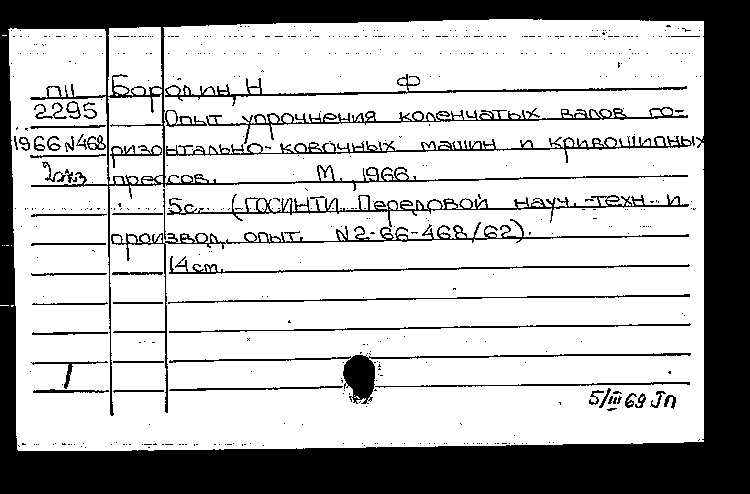 ПII Бородин, Н Ф
2295 Опыт упрочнения коленчатых валов го-
1966 N468 ризонтально-ковочных машин и кривошипных
2экз прессов. М., 1966.
5с. (ГОСИНТИ. Передовой науч.-техн. и
производ. опыт. N2-66-468/62).
14см.
1
5/III 69